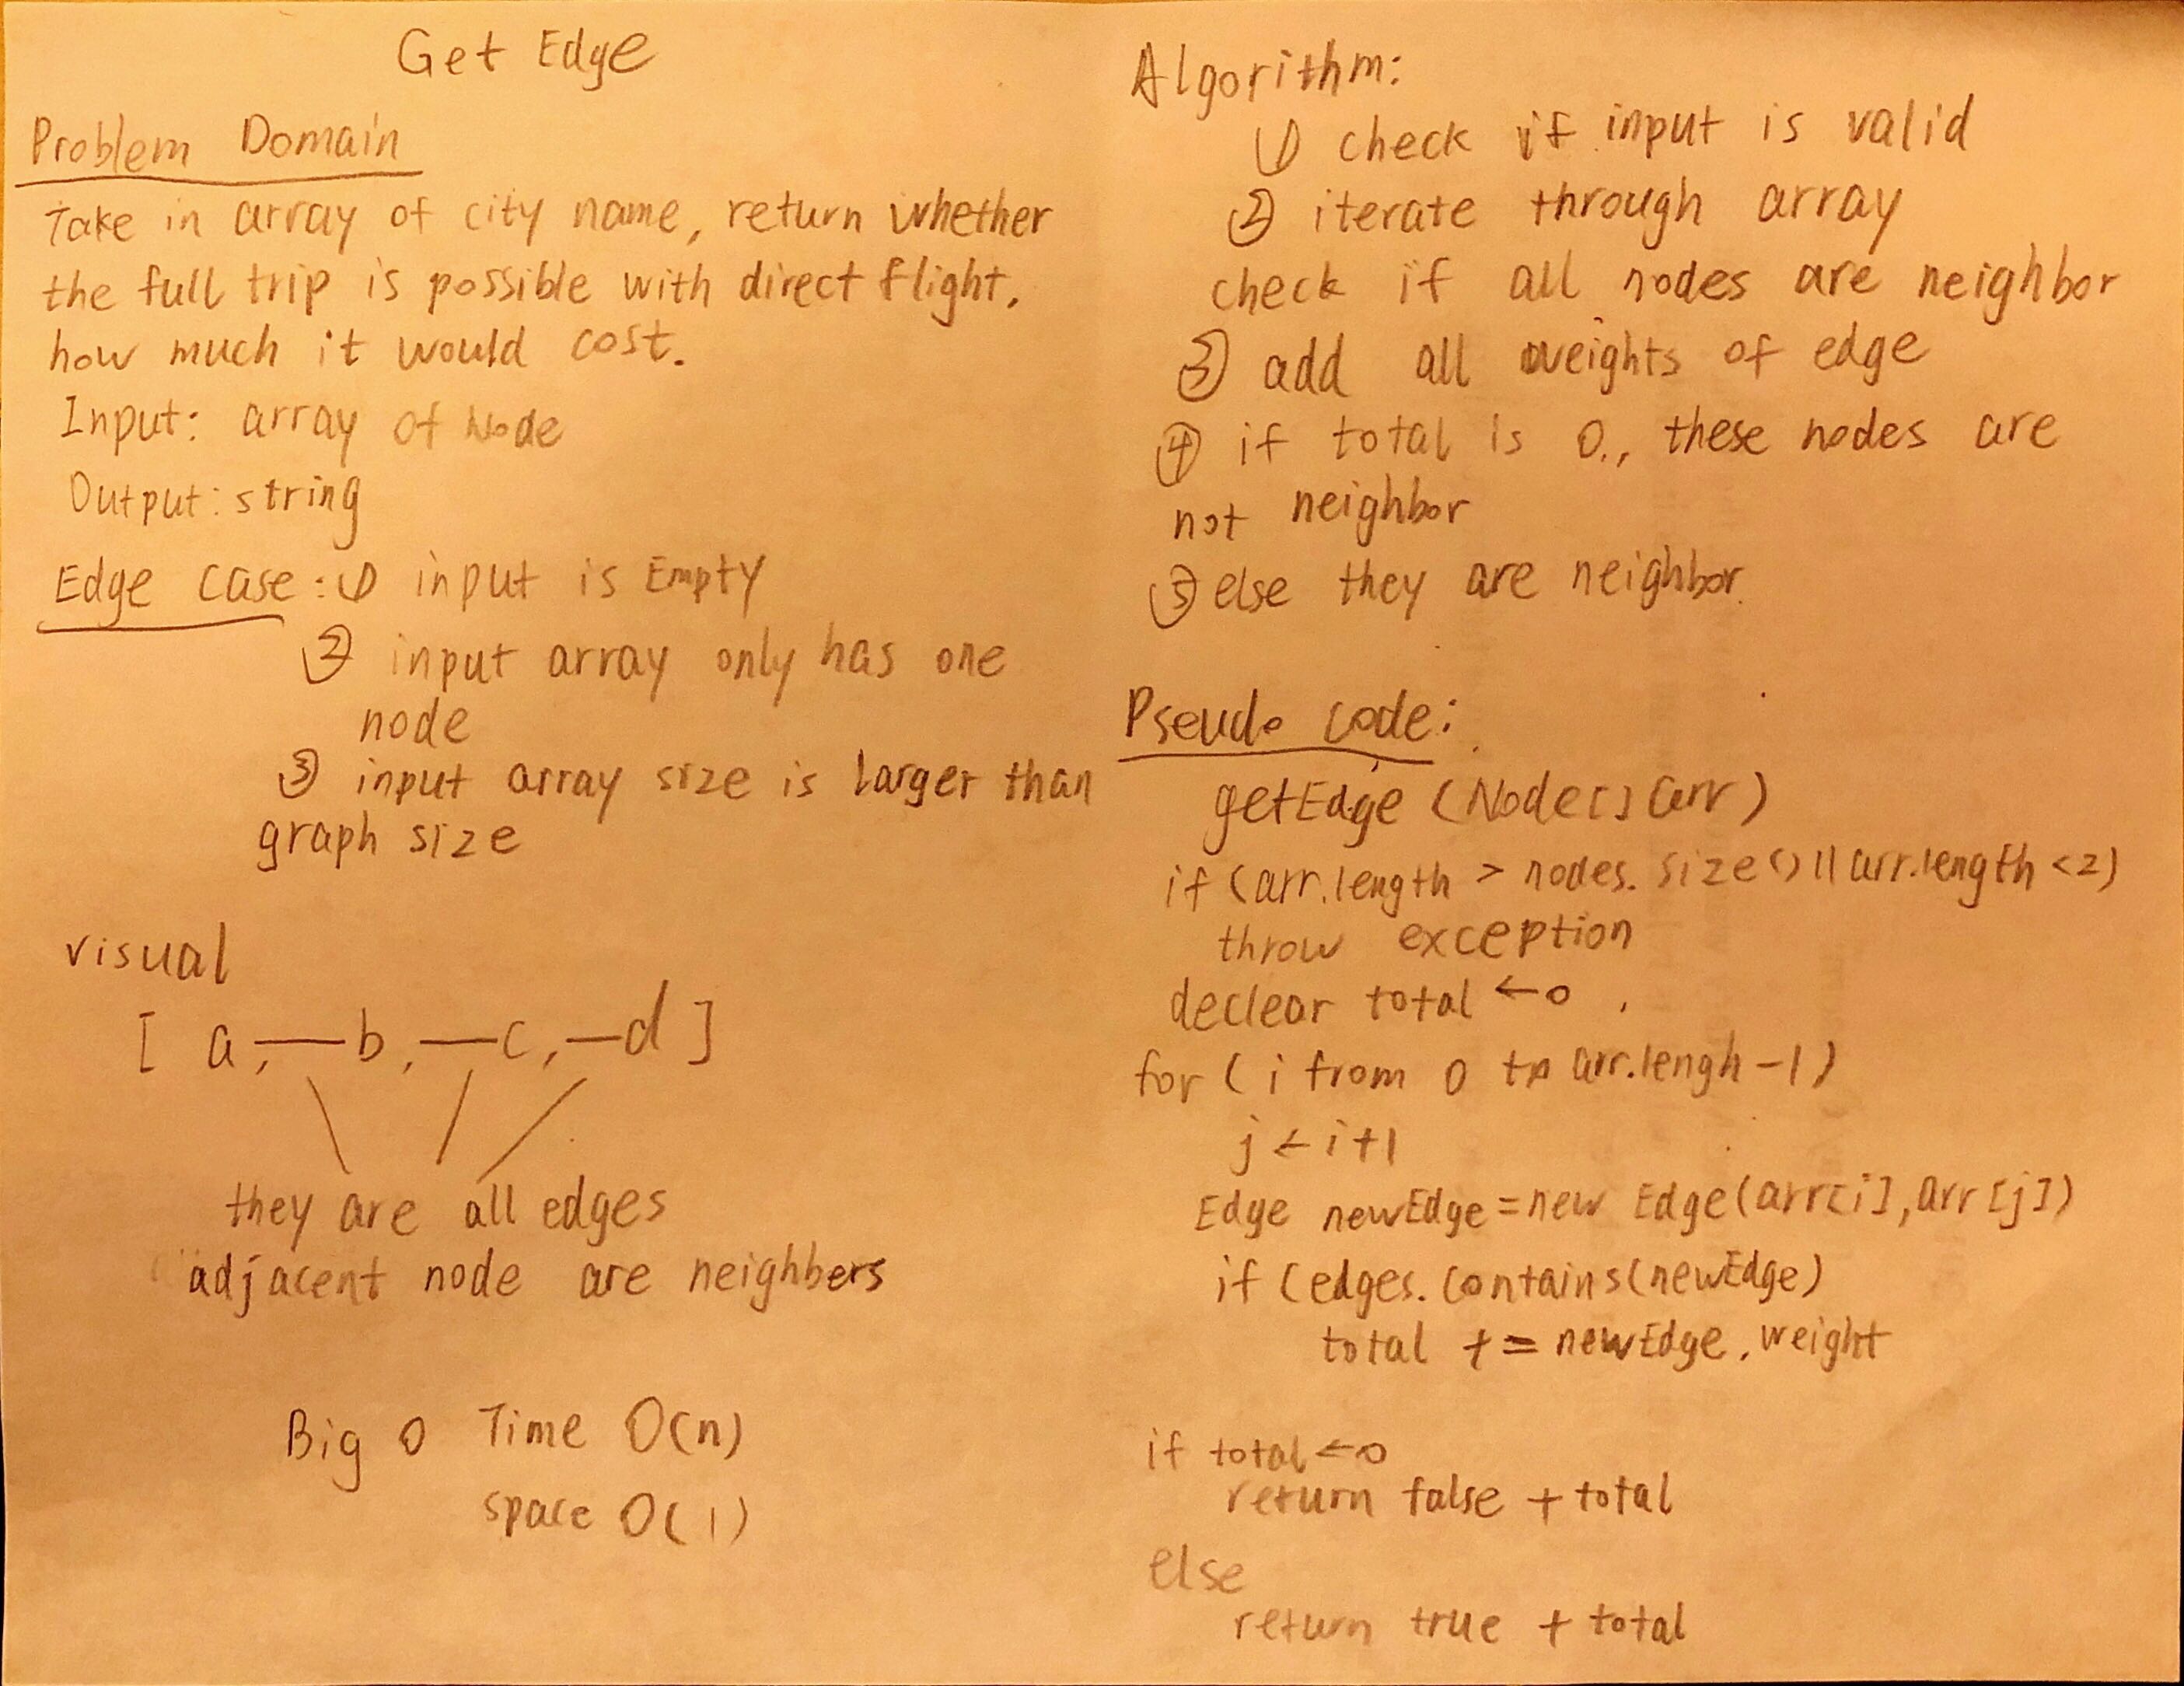 Get Edge
Problem Domain
Take in array of city name, return whether
the full trip is possible with direct flight.
how much it would cost.
Input: array of Node
Output: string
Edge Case: ① input is Empty
② input array only has one
node
③ input array size is larger than
graph size
visual
[ a, — b, — c, — d ]
they are all edges
adjacent node are neighbers
Big O Time O(n)
space O(1)
Algorithm:
① check if input is valid
② iterate through array
check if all nodes are neighbor
③ add all weights of edge
④ if total is 0., these nodes are
not neighbor
⑤ else they are neighbor.
Pseudo code:
getEdge (Node[] arr)
if (arr.length > nodes.size() || arr.length <2)
throw exception
declear total ← 0
for ( i from 0 to arr.lengh -1)
j ← i+1
Edge newEdge = new Edge(arr[i], arr[j])
if (edges.contains(newEdge)
total += newEdge.weight
if total ← 0
return false + total
else
return true + total